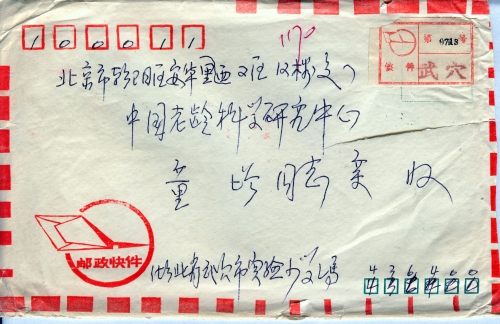 100011
1170
第0713号
快件 武穴
北京市朝阳区安华里西区
中国老龄科学研究中心
童 同志亲收
邮政快件
湖北省武穴市实验小学冯